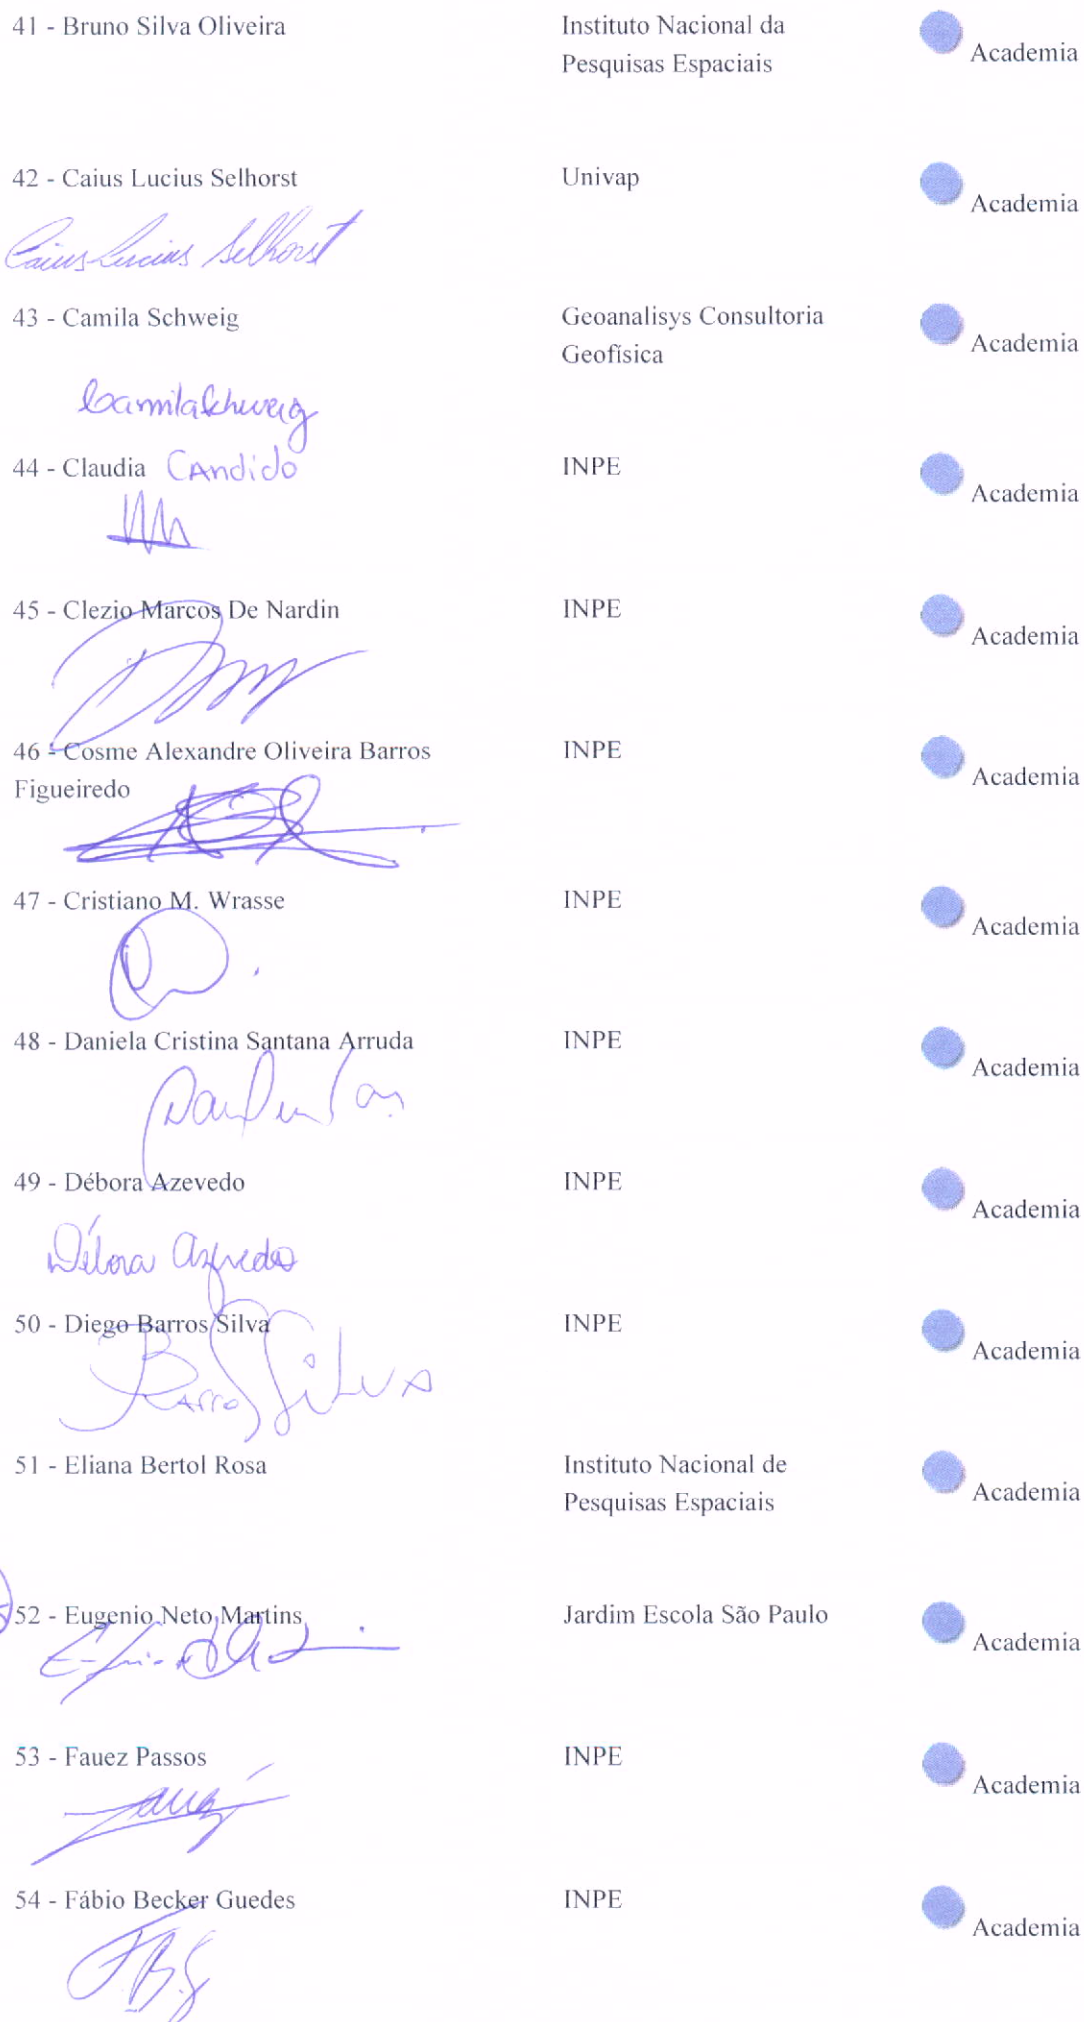 41 - Bruno Silva Oliveira Instituto Nacional da
Pesquisas Espaciais Academia
42 - Caius Lucius Selhorst Univap
Academia
Caius Lucius Selhorst
43 - Camila Schweig Geoanalisys Consultoria
Geofísica Academia
Camila Schweig
44 - Claudia Candido INPE
Academia
45 - Clezio Marcos De Nardin INPE
Academia
46 - Cosme Alexandre Oliveira Barros INPE
Figueiredo Academia
47 - Cristiano M. Wrasse INPE
Academia
48 - Daniela Cristina Santana Arruda INPE
Academia
49 - Débora Azevedo INPE
Academia
Débora Azevedo
50 - Diego Barros Silva INPE
Academia
Barros Silva
51 - Eliana Bertol Rosa Instituto Nacional de
Pesquisas Espaciais Academia
52 - Eugenio Neto Martins Jardim Escola São Paulo
Academia
53 - Fauez Passos INPE
Academia
54 - Fábio Becker Guedes INPE
Academia